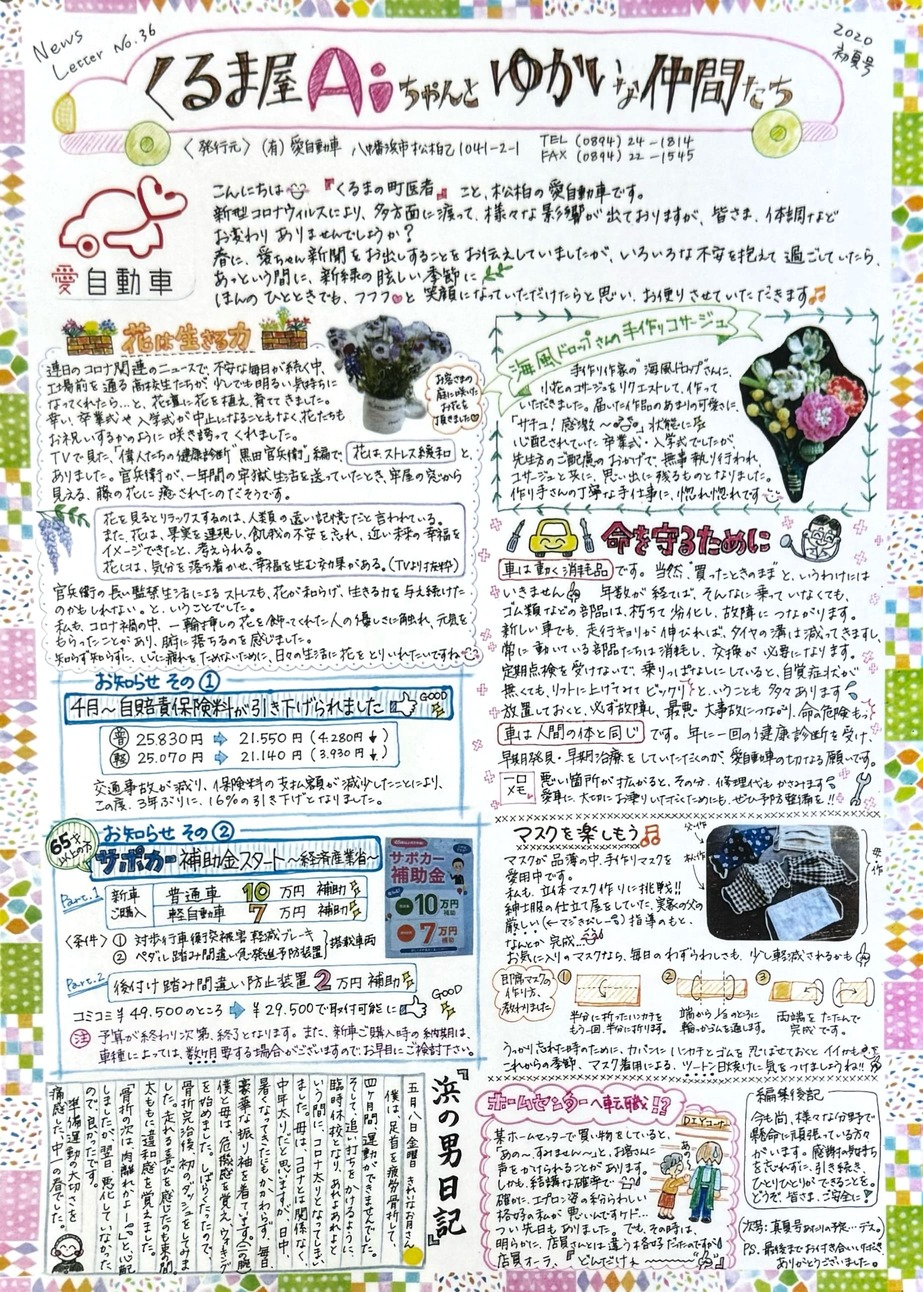 News
Letter No.36
2020
初夏号
くるま屋Aiちゃんとゆかいな仲間たち
〈発行元〉(有)愛自動車 八幡浜市松柏乙1041-2-1
TEL (0894) 24-1814
FAX (0894) 22-1545
愛自動車
こんにちは 『くるまの町医者』こと、松柏の愛自動車です。
新型コロナウィルスにより、多方面に渡って、様々な影響が出ておりますが、皆さま、体調など
お変わりありませんでしょうか?
春に、愛ちゃん新聞をお出しすることをお伝えしていましたが、いろいろな不安を抱えて過ごしていたら、
あっという間に、新緑の眩しい季節に
ほんのひとときでも、フフフ♡と笑顔になっていただけたらと思い、お便りさせていただきます♫
花は生きる力
連日のコロナ関連のニュースで、不安な毎日が続く中、
工場前を通る高校生たちが、少しでも明るい気持ちに
なってくれたら…と、花壇に花を植え、育ててきました。
幸い、卒業式や入学式が中止になることもなく、花たちも
お祝いするかのように咲き誇ってくれました。
TVで見た、“偉人たちの健康診断”「黒田官兵衛」編で、花はストレス緩和 と、
ありました。官兵衛が、一年間の牢獄生活を送っていたとき、牢屋の窓から
見える、藤の花に癒されたのだそうです。
お客さまの
庭に咲いた
お花を
頂きました♡
花を見るとリラックスするのは、人類の遠い記憶だと言われている。
また、花は、果実を連想し、飢餓の不安を忘れ、近い未来の幸福を
イメージできたと、考えられる。
花には、気分を落ち着かせ、幸福を生む効果がある。(TVより抜粋)
官兵衛の長い監禁生活によるストレスも、花が和らげ、生きる力を与え続けた
のかもしれない。と、いうことでした。
私も、コロナ禍の中、一輪挿しの花を飾ってくれた人の優しさに触れ、元気を
もらったことがあり、腑に落ちるのを感じました。
知らず知らずに、心に疲れをためないために、日々の生活に花をとりいれたいですね
海風ドロップさんの手作りコサージュ
手作り作家の“海風ドロップ”さんに、
小花のコサージュをリクエストして、作って
いただきました。届いた作品のあまりの可愛さに、
「サチコ!感激〜」状態に
心配されていた卒業式・入学式でしたが、
先生方のご配慮のおかげで、無事執り行われ、
コサージュと共に、思い出に残るものとなりました。
作り手さんの丁寧な手仕事に、惚れ惚れです
命を守るために
車は動く消耗品 です。当然“買ったときのまま”と、いうわけには
いきません 年数が経てば、そんなに乗っていなくても、
ゴム類などの部品は、朽ちて劣化し、故障につながります。
新しい車でも、走行キョリが伸びれば、タイヤの溝は減ってきますし、
常に動いている部品たちは消耗し、交換が必要になります。
定期点検を受けないで、乗りっぱなしにしていると、自覚症状が
無くても、リフトに上げてみてビックリと、いうことも多々あります
放置しておくと、必ず故障し、最悪大事故につながり、命の危険も
車は人間の体と同じ です。年に一回の健康診断を受け、
早期発見・早期治療をしていただくのが、愛自動車の切なる願いです。
一口メモ 悪い箇所が拡がると、その分、修理代もかさみます
愛車に、大切にお乗りいただくためにも、ぜひ予防整備を!!
お知らせ その①
4月〜自賠責保険料が引き下げられました GOOD
普 25.830円 ⇨ 21.550円 (4.280円↓)
軽 25.070円 ⇨ 21.140円 (3.930円↓)
交通事故が減り、保険料の支払額が減少したことにより、
この度、3年ぶりに、16%の引き下げとなりました。
65才以上の方
お知らせ その②
サポカー補助金スタート〜経済産業省〜
Part.1
新車ご購入 普通車 10万円 補助
軽自動車 7万円 補助
〈条件〉① 対歩行車衝突被害軽減ブレーキ
② ペダル踏み間違い急発進防止装置
搭載車両
サポカー
補助金
10万円
7万円
Part.2
後付け踏み間違い防止装置 2万円補助
コミコミ¥49.500のところ ⇨ ¥29.500で取付可能に GOOD
注 予算が終わり次第、終了となります。また、新車ご購入時の納期は、
車種によっては、数ヶ月要する場合がございますので、お早目にご検討下さい。
マスクを楽しもう♫
マスクが品薄の中、手作りマスクを
愛用中です。
私も、立体マスク作りに挑戦!!
紳士服の仕立て屋をしていた、実家の父の
厳しい(←マジきびしー)指導のもと、
なんとか完成
お気に入りのマスクなら、毎日のわずらわしさも、少し軽減されるかも
父作
私作
母作
即席マスクの
作り方、
教わりました
① 半分に折ったハンカチを
もう一回、半分に折ります。
② 端から1/3のところに
輪っかゴムを通します。
③ 両端をたたんで
完成です。
うっかり忘れた時のために、カバンにハンカチとゴムを忍ばせておくとイイかも
これからの季節、マスク着用による、ツートン日焼けに気をつけましょうね!!
『浜の男日記』
五月八日金曜日 きれいなお月さん
僕は、足首を疲労骨折して、
四ヶ月間、運動ができませんでした。
そして、追い打ちをかけるように、
臨時休校となり、あれよあれよと
いう間に、コロナ太りとなってしまい
ました。母は、コロナとは関係なく、
中年太りだと思いますが、日中、
暑くなってきたにもかかわらず、毎日、
豪華な振り袖を着ています(二の腕)
僕と母は、危機感を覚え、ウォーキング
を始めました。しばらくたったので、
骨折完治後、初のダッシュをしてみま
した。走れる喜びを感じたのも束の間、
太ももに違和感を覚えました。
骨折の次は、肉離れかよー!と、心配
しましたが、翌日、悪化していなかった
ので、良かったです。
準備運動の大切さを
痛感した、中二の春でした。
ホームセンターへ転職!?
某ホームセンターで買い物をしていると、
「あの〜、すみませ〜ん」と、お客さんに
声をかけられることがあります。
しかも、結構な確率で
確かに、エプロン姿の私らしい
格好の私が悪いんですケド…
つい先日もありました。でも、その時は、
明らかに、店員さんとは違う格好だったのですが
店員オーラ、『どんだけぇ〜〜〜』
DIYコーナー
編集後記
今も尚、様々な分野で
懸命に頑張っている方々
がいます。感謝の気持ち
を忘れずに、引き続き、
ひとりひとりができることを。
どうぞ、皆さま、ご安全に!
(次号：真夏号あたりの予定…デス。)
P.S. 最後までお付き合いいただき、
ありがとうございました。